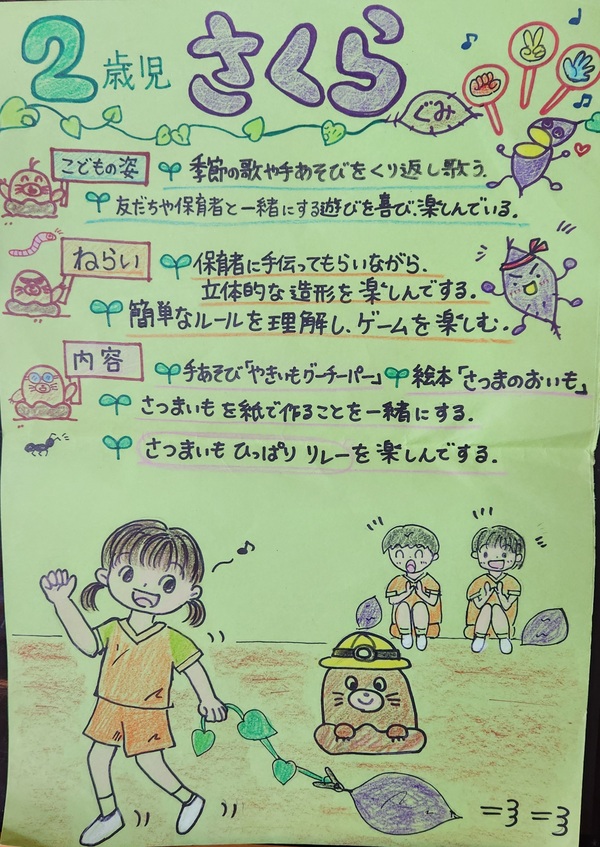 2歳児 さくら ぐみ
こどもの姿
季節の歌や手あそびをくり返し歌う.
友だちや保育者と一緒にする遊びを喜び、楽しんでいる.
ねらい
保育者に手伝ってもらいながら.
立体的な造形を楽しんでする.
簡単なルールを理解し、ゲームを楽しむ.
内容
手あそび「やきいもグーチーパー」 絵本「さつまのおいも」
さつまいもを紙で作ることを一緒にする.
さつまいもひっぱりリレーを楽しんでする.